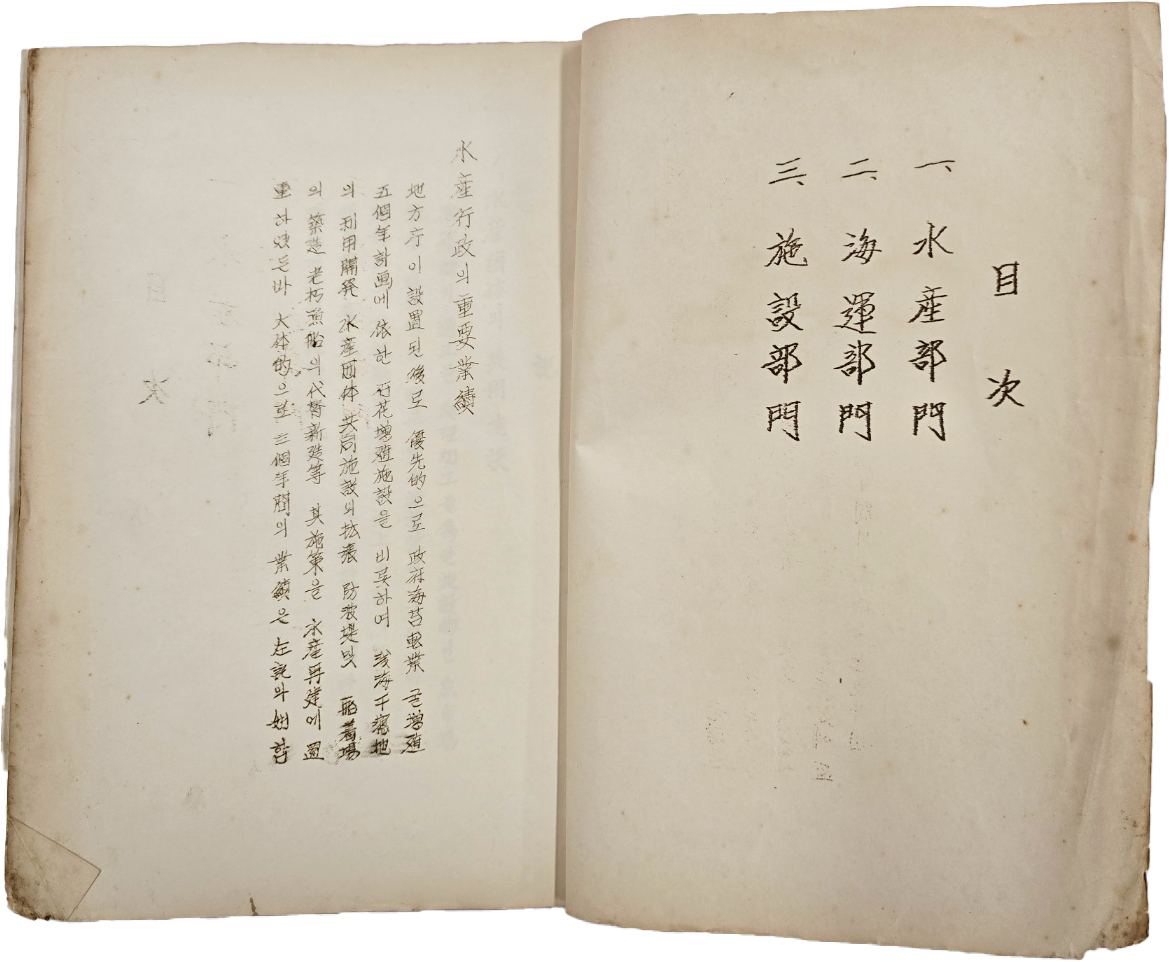 目次
一、水産部門
二、海運部門
三、施設部門
水産行政의 重要業績
地方庁이 設置된 後로 優先的으로 政府海苔事業 굴增殖
五個年計画에 依한 石花增殖施設을 비롯하여 浅海干潟地
의 利用開発 水産団体 共同施設의 拡張 防波堤及 船着場
의 築造 老朽漁船의 代替新造等 其施策을 水産再建에 置
重하였든바 大体的으로 三個年間의 業績은 左記와 如함